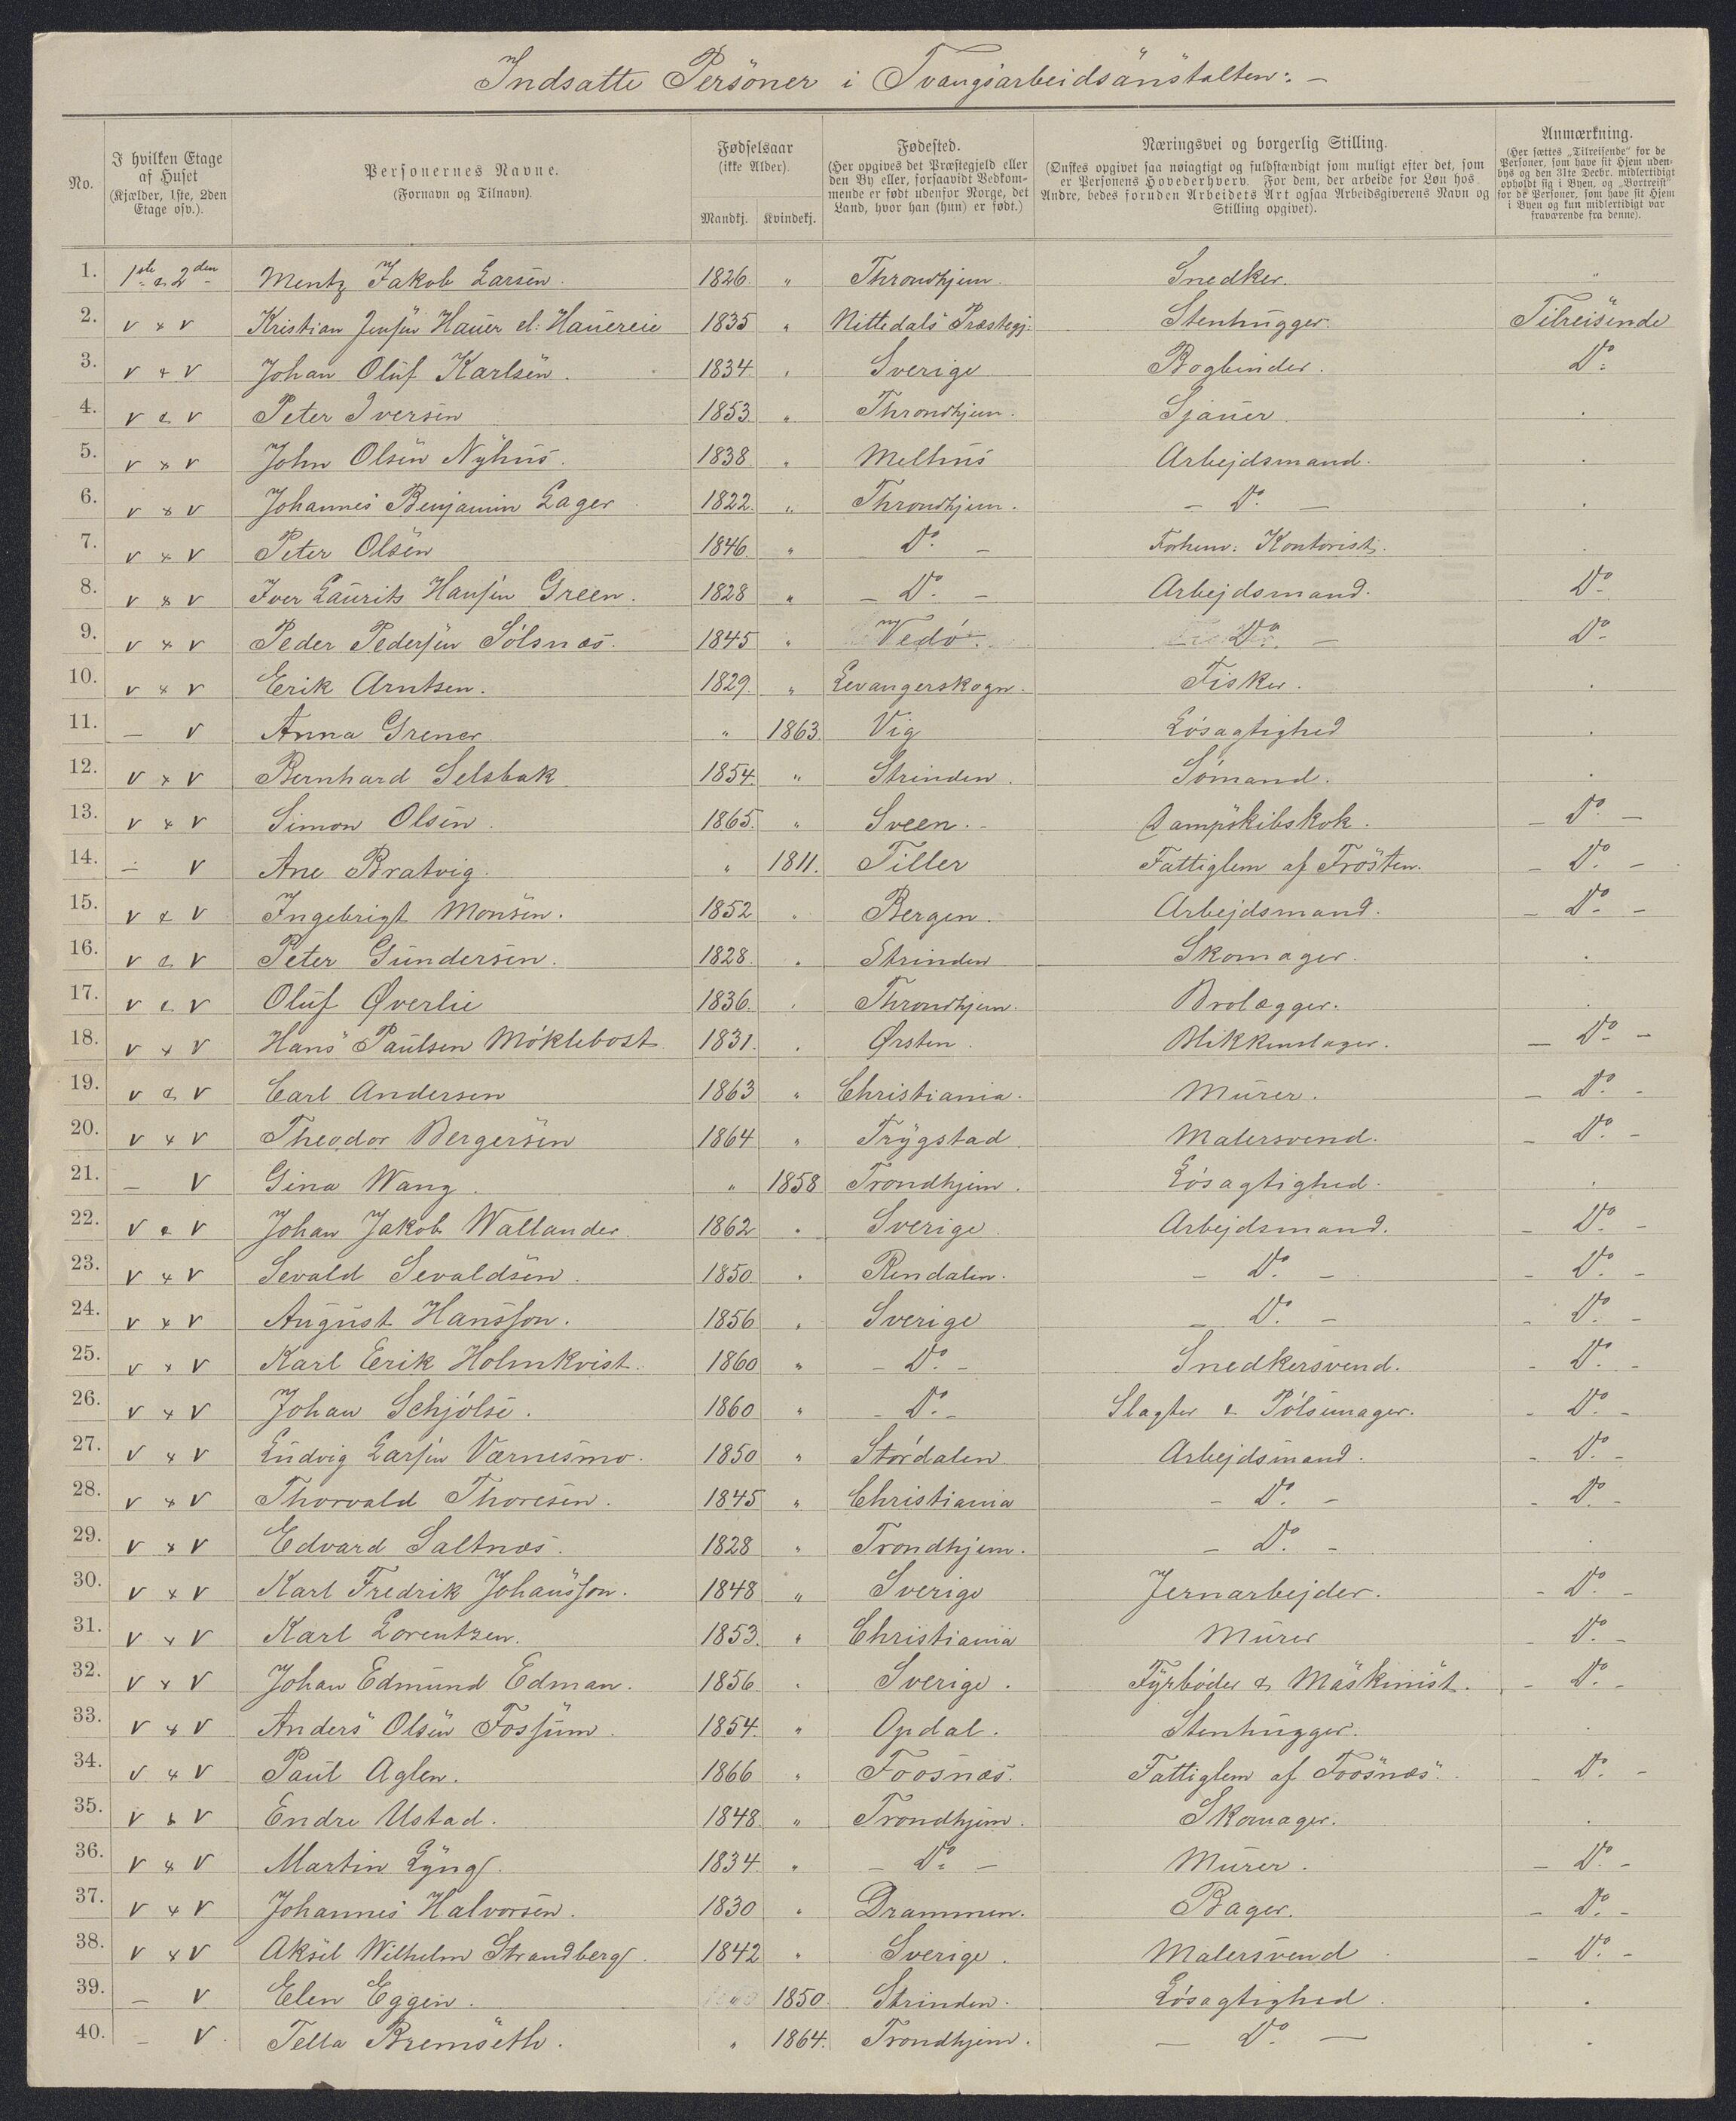 Indsatte Personer i Tvangsarbeidsanstalten: –
No.
I hvilken Etage af Huset (Kjælder, 1ste, 2den Etage osv.).
Personernes Navne. (Fornavn og Tilnavn).
Fødselsaar (ikke Alder).
Mandkj. Kvindekj.
Fødested. (Her opgives det Præstegjeld eller den By eller, forsaavidt Vedkommende er født udenfor Norge, det Land, hvor han (hun) er født.)
Næringsvei og borgerlig Stilling. (Ønskes opgivet saa nøiagtigt og fuldstændigt som muligt efter det, som er Personens Hovederhverv. For dem, der arbeide for Løn hos Andre, bedes foruden Arbeidets Art ogsaa Arbeidsgiverens Navn og Stilling opgivet).
Anmærkning. (Her sættes „Tilreisende“ for de Personer, som have sit Hjem udenbys og den 31te Decbr. midlertidigt opholdt sig i Byen, og „Bortreist“ for de Personer, som have sit Hjem i Byen og kun midlertidigt var fraværende fra denne).
1. 1ste & 2den Mentz Jakob Larsen. 1826 " Throndhjem. Snedker. "
2. v & v Kristian Jensen Hauer el: Hauereie 1835 " Nittedals Præstegj: Stenhugger. Tilreisende
3. v & v Johan Oluf Karlsen. 1834 " Sverige Bogbinder. Do
4. v & v Peter Iversen 1853 " Throndhjem. Sjauer
5. v & v John Olsen Nyhus. 1838 " Melhus Arbejdsmand.
6. v & v Johannes Benjamin Lager 1822. " Throndhjem. – Do –
7. v & v Peter Olsen 1846. " Do – Forhenv: Kontorist.
8. v & v Iver Laurits Hansen Green. 1828 " – Do – Arbejdsmand. Do
9. v & v Peder Pedersen Sølsnæs. 1845 " Vedø. Do – Do
10. v & v Erik Arntsen. 1829. " Levangerskogn. Fisker.
11. – v Anna Grener " 1863 Vig Løsagtighed
12. v & v Bernhard Selsbak 1854. " Strinden. Sømand.
13. v & v Simon Olsen. 1865. " Sveen. Dampskibskok. – Do –
14. – v Ane Bratvig. " 1811. Tiller Fattiglem af Frosten. – Do –
15. v & v Ingebrigt Monsen. 1852 " Bergen. Arbejdsmand. – Do –
16. v & v Peter Gundersen. 1828 " Strinden Skomager.
17. v & v Oluf Øverlie 1836. " Throndhjem. Brolægger.
18. v & v Hans Paulsen Møklebost 1831. " Ørsten. Blikkenslager. – Do –
19. v & v Carl Andersen 1863 " Christiania. Murer. – Do –
20. v & v Theodor Bergersen 1864 " Trygstad. Malersvend. – Do –
21. – v Gina Wang. " 1858 Trondhjem. Løsagtighed.
22. v & v Johan Jakob Wallander. 1862 " Sverige. Arbejdsmand. – Do –
23. v & v Sevald Sevaldsen. 1850 " Rendalen. – Do – – Do –
24. v & v August Hansson. 1856 " Sverige – Do – – Do –
25. v & v Karl Erik Holmkvist. 1860 " – Do – Snedkersvend. – Do –
26. v & v Johan Schjølse. 1860 " – Do – Slagter & Pølsemager. – Do –
27. v & v Ludvig Larsen Værnesmo. 1850 " Størdalen Arbejdsmand. – Do –
28. v & v Thorvald Thoresen. 1845 " Christiania – Do – – Do –
29. v & v Edvard Saltnæs. 1828 " Trondhjem. – Do –
30. v & v Karl Fredrik Johansson. 1848 " Sverige Jernarbejder. – Do –
31. v & v Karl Lorentzen. 1853. " Christiania Murer – Do –
32. v & v Johan Edmund Edman. 1856 " Sverige. Fyrbøder & Maskinist. – Do –
33. v & v Anders Olsen Fossum. 1854. " Opdal. Stenhugger.
34. v & v Paul Aglen. 1866 " Foosnæs. Fattiglem af Foosnæs. – Do –
35. v & v Endre Ustad. 1848. " Trondhjem. Skomager.
36. v & v Martin Lyng. 1834. " – Do – Murer. – Do –
37. v & v Johannes Halvorsen. 1830 " Drammen. Bager. – Do –
38. v & v Aksel Wilhelm Strandberg. 1842 " Sverige. Malersvend. – Do –
39. – v Elen Eggen. 1850. Strinden. Løsagtighed.
40. – v. Tella Bremseth. " 1864. Trondhjem. – Do –